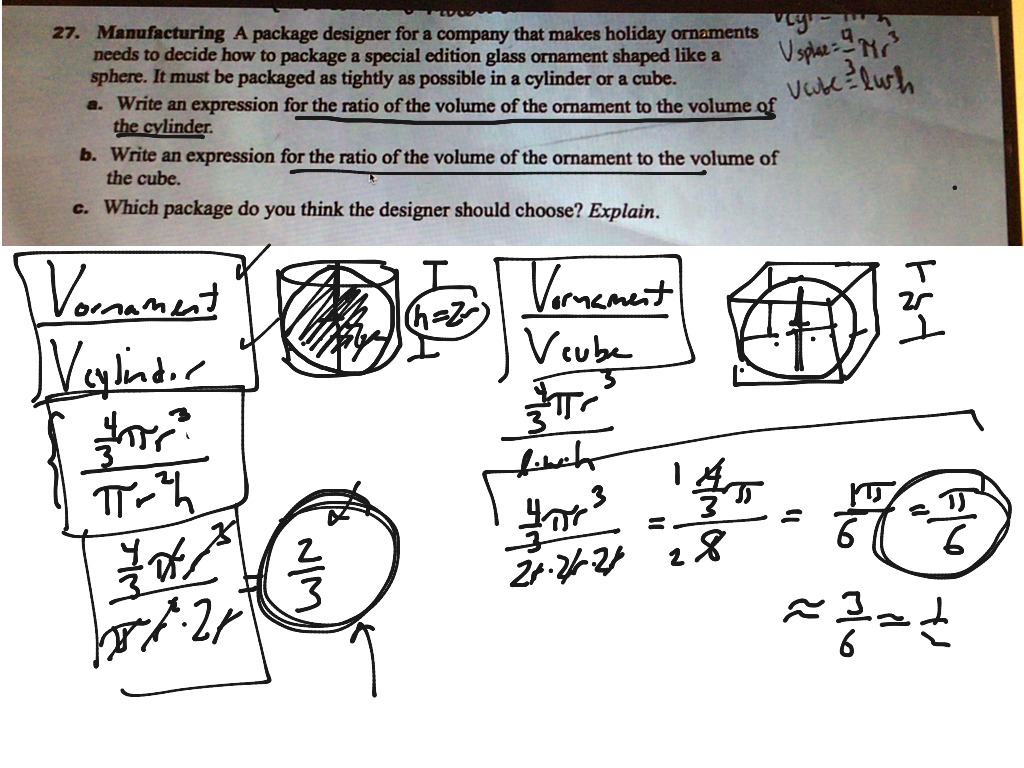 27. Manufacturing A package designer for a company that makes holiday ornaments
needs to decide how to package a special edition glass ornament shaped like a
sphere. It must be packaged as tightly as possible in a cylinder or a cube.
a. Write an expression for the ratio of the volume of the ornament to the volume of
the cylinder.
b. Write an expression for the ratio of the volume of the ornament to the volume of
the cube.
c. Which package do you think the designer should choose? Explain.
V sphere = 4/3 πr³
V cube = lwh
V ornament
V cylinder
h=2r
4/3 πr³
πr²h
4/3 πr³
πr²·2r
= 2/3
V ornament
V cube
2r
4/3 πr³
l·w·h
4/3 πr³
2r·2r·2r
= 1 4/3 π
2 8
= 1π/6 = π/6
≈ 3/6 ≈ 1/2